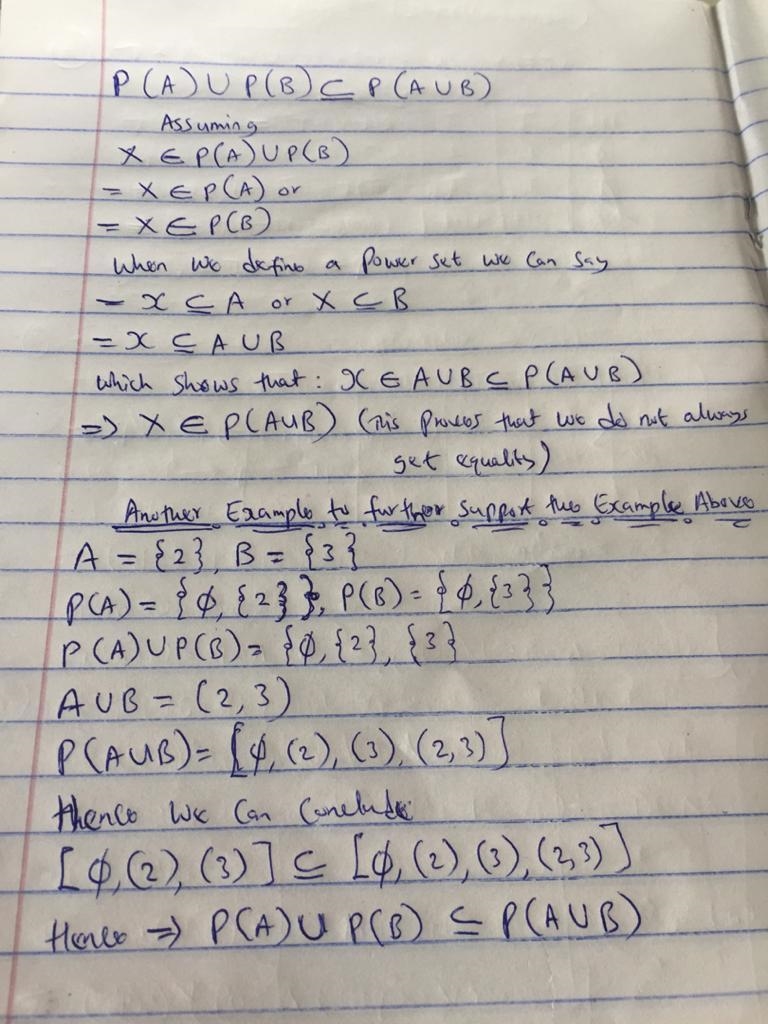 P(A) ∪ P(B) ⊆ P(A∪B)
Assuming
X ∈ P(A)∪P(B)
= X ∈ P(A) or
= X ∈ P(B)
When we define a Power set we can say
- x ⊆ A or X ⊆ B
= x ⊆ A ∪ B
which shows that: x ∈ A∪B ⊆ P(A∪B)
=> X ∈ P(A∪B) (This proves that we do not always
get equality)
Another Example to further support the Example Above
A = {2}, B = {3}
P(A) = {∅, {2}}, P(B) = {∅, {3}}
P(A)∪P(B) = {∅, {2}, {3}
A∪B = (2,3)
P(A∪B) = [∅, (2), (3), (2,3)]
Hence we can conclude
[∅, (2), (3)] ⊆ [∅, (2), (3), (2,3)]
Hence => P(A)∪ P(B) ⊆ P(A∪B)